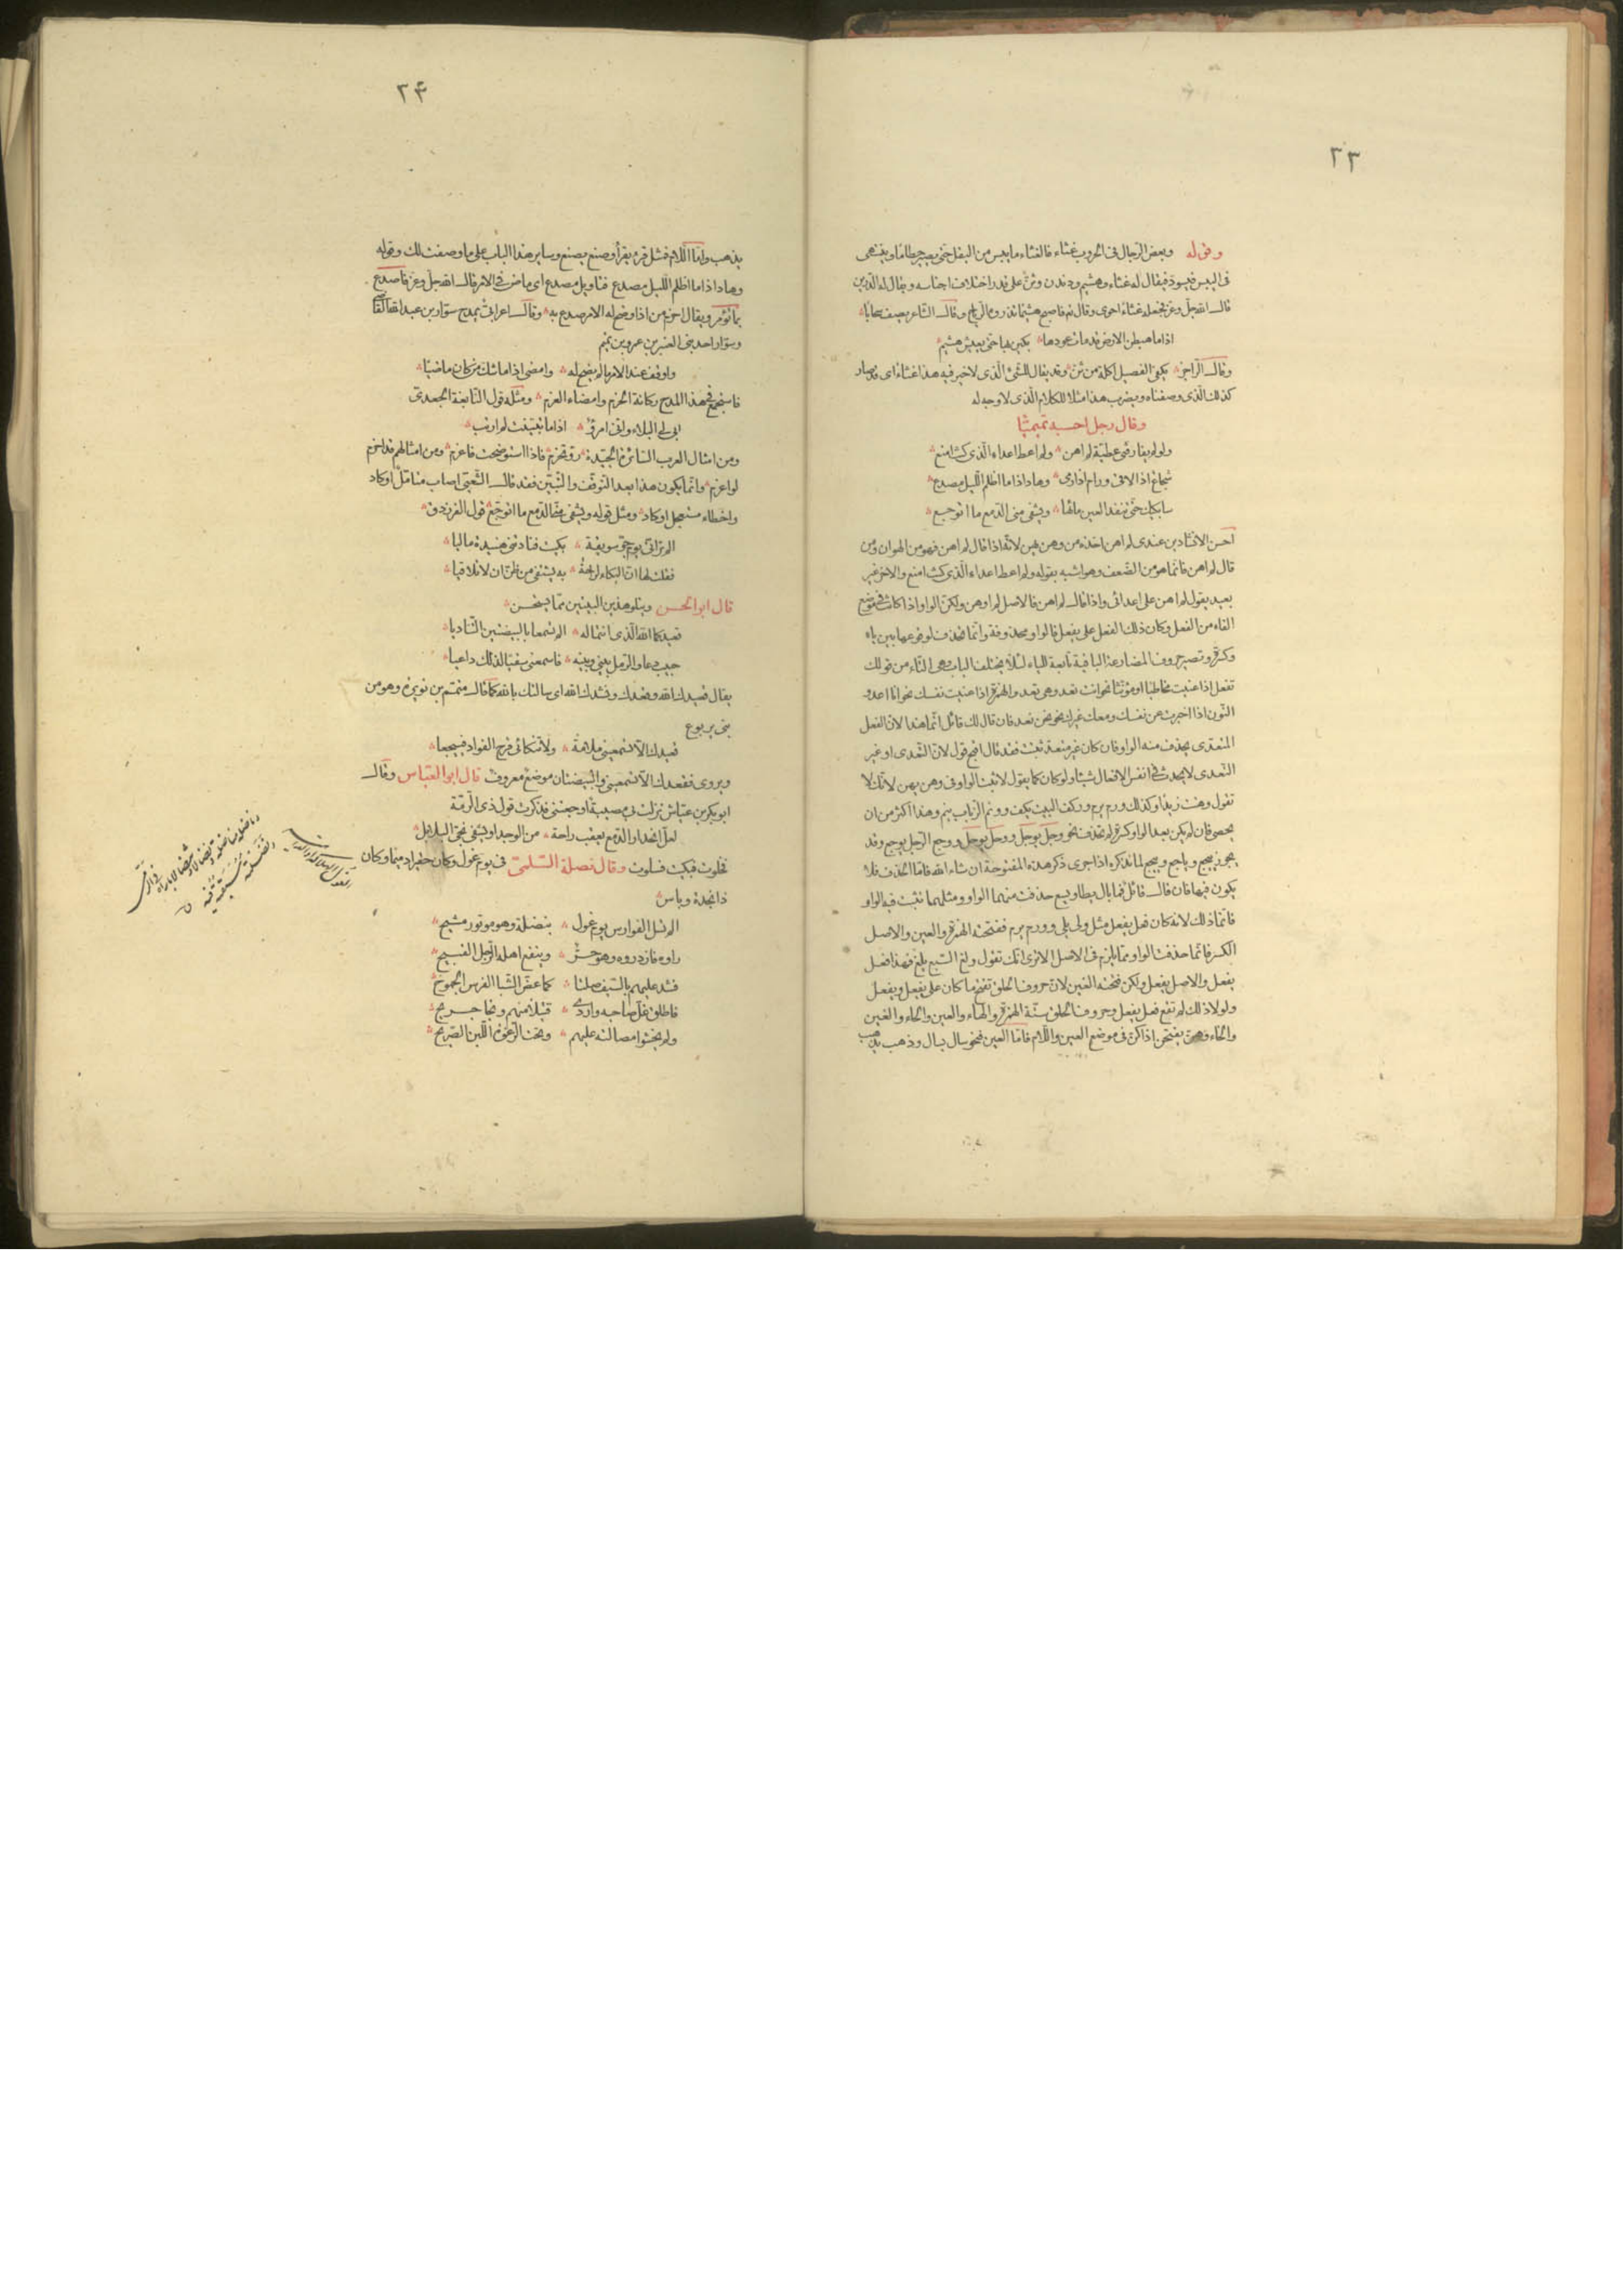 ٢٣
وقوله وبعض الرجال فى الحروب غثاء فالغثاء ما يبس من البقل حتى يصير حطاما وينتهى
فى اليبس فيسود فيقال له غثاء وهشيم ودندن وثن على قدر اختلاف اجناسه ويقال له الدرين
قال الله جل وعز فجعله غثاء احوى وقال فاصبح هشيما تذروه الرياح وقال الشاعر يصف سحابا
اذا ما هبطن الارض قد مات عودها بكين بها حتى يعيش هشيم
وقال الراجز يكفى الفصيل اكلة من ثن وقد يقال للشئ الذى لا خير فيه هذا غثاء اى قد صار
كذلك الذى وصفناه ويضرب هذا مثلا للكلام الذى لا وجه له
وقال رجل احسبه تميميا
ولو لم يفارقنى عطية لم اهن ولم اعط اعداء الذى كنت امنع
شجاع اذا لاقى ورام اذا رمى وهاد اذا ما اظلم الليل مصدع
سابكيك حتى تنفد العين ماءها ويشفى منى الدمع ما اتوجع
احسن الانشادين عندى لم اهن اخذه من وهن يهن لانه اذا قال لم اهن فهو من الهوان ومن
قال لم اهن فانما هو من الضعف وهو اشبه بقوله ولم اعط اعداء الذى كنت امنع والاخر غير
بعيد يقول لم اهن على اعدائى واذا قال لم اهن فالاصل لم اوهن ولكن الواو اذا كانت فى موضع
الفاء من الفعل وكان ذلك الفعل على يفعل فالواو محذوفة وانما حذفت لوقوعها بين ياء
وكسرة وتصير حروف المضارعة الباقية تابعة للياء لئلا يختلف الباب وهى التاء من قولك
تفعل اذا عنيت مخاطبا او مؤنثا نحو انت تعد وهى تعد والهمزة اذا عنيت نفسك نحو انا اعد و
النون اذا اخبرت عن نفسك ومعك غيرك نحو نحن نعد فان قال لك قائل انما هذا لان الفعل
المتعدى يحذف منه الواو فان كان غير متعد ثبتت فقد قال اقبح قول لان التعدى او غير
التعدى لا يحدث فى انفس الافعال شيئا ولو كان كما يقول لاثبت الواو فى وهن يهن لانك لا
تقول وهنت زيدا وكذلك ورم يرم ووكف البيت يكف وونم الذباب ينم وهذا اكثر من ان
يحصى فان لم يكن بعد الواو كسرة لم تحذف نحو وجل يوجل ووحل يوحل ووجع الرجل يوجع وقد
يجوز ييجع وياجع وييجع لما نذكره اذا جرى ذكر هذه المفتوحة ان شاء الله فاما الحذف فلا
يكون فيها فان قال قائل فما بال يطا ويسع حذفت منهما الواو ومثلهما تثبت فيه الواو
فانما ذلك لانه كان فعل يفعل مثل ولى يلى وورم يرم ففتحته الهمزة والعين والاصل
الكسر فانما حذفت الواو مما يلزم فى الاصل الا ترى انك تقول ولغ السبع يلغ فهذا فعل
يفعل والاصل يفعل ولكن فتحته الغين لان حروف الحلق تفتح ما كان على يفعل ويفعل
ولولا ذلك لم تقع فعل يفعل وحروف الحلق ستة الهمزة والهاء والعين والحاء والغين
والخاء وهن يفتحن اذا كن فى موضع العين واللام فاما العين فنحو سال يسال وذهب يذهب
٢٤
يذهب واما اللام فمثل قرء يقرأ وصنع يصنع وساير هذا الباب على ما وصفت لك وقوله
وهاد اذا ما اظلم الليل مصدع فتاويل مصدع اى ماض فى الامر قال الله جل وعز فاصدع
بما تؤمر ويقال احزم من اذا وضح له الامر صدع به وقال اعرابى يمدح سوار بن عبد الله القاضى
وسوار احد بنى العنبر بن عمرو بن تميم
واوقف عند الامر ما لم يضح له وامضى اذا ما شك من كان ماضيا
فاستجمع فى هذا المدح ركانة الحزم وامضاء العزم ومثله قول النابغة الجعدى
ابى لى البلاء وانى امرؤ اذا ما تبينت لم ارتب
ومن امثال العرب السائرة الجيدة رو تحزم فاذا استوضحت فاعزم ومن امثالهم قد احزم
لو اعزم وانما يكون هذا بعد التوقف والتبين فقد قال الشعبى اصاب متامل او كاد
واخطاء مستعجل او كاد ومثل قوله ويشفى منى الدمع ما اتوجع قول الفرزدق
الم ترانى يوم جو سويقة بكيت فنادتنى هنيدة ماليا
فقلت لها ان البكاء لراحة به يشتفى من ظن ان لا تلاقيا
قال ابو الحسن ويتلو هذين البيتين مما يستحسن
قعيدكما الله الذى انتما له الم تسمعا بالبيضتين المناديا
حبيب دعا والرمل بينى وبينه فاسمعنى سقيا لذلك داعيا
يقال قعيدك الله وقعدك ونشدك الله اى سالتك بالله كما قال متمم بن نويرة وهو من
بنى يربوع
قعيدك الا تسمعينى ملامة ولا تنكائى قرح الفواد فييجعا
ويروى فقعدك الا تسمعينى والبيضتان موضع معروف قال ابو العباس وقال
ابو بكر بن عياش نزلت بى مصيبة اوجعتنى فذكرت قول ذى الرمة
لعل انحدار الدمع يعقب راحة من الوجد او يشفى نجى البلابل
فخلوت فبكيت فسلوت وقال نضلة السلمى فى يوم غول وكان حقيرا دميما وكان
ذا نجدة وباس
الم تسل الفوارس يوم غول بنضلة وهو موتور مشيح
راوه فازدروه وهو حر وينفع اهله الرجل القبيح
فشد عليهم بالسيف صلتا كما عض الشبا الفرس الجموح
فاطلق غل صاحبه واردى قتيلا منهم ونجا جريح
ولم يخشوا مصالته عليهم وتحت الرغوة اللبن الصريح